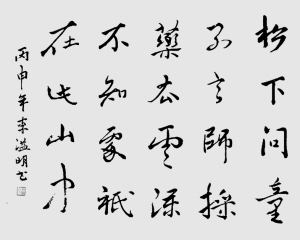 松下問童
子言師採
藥去雲深
不知處祇
在此山中
丙申年溢明书